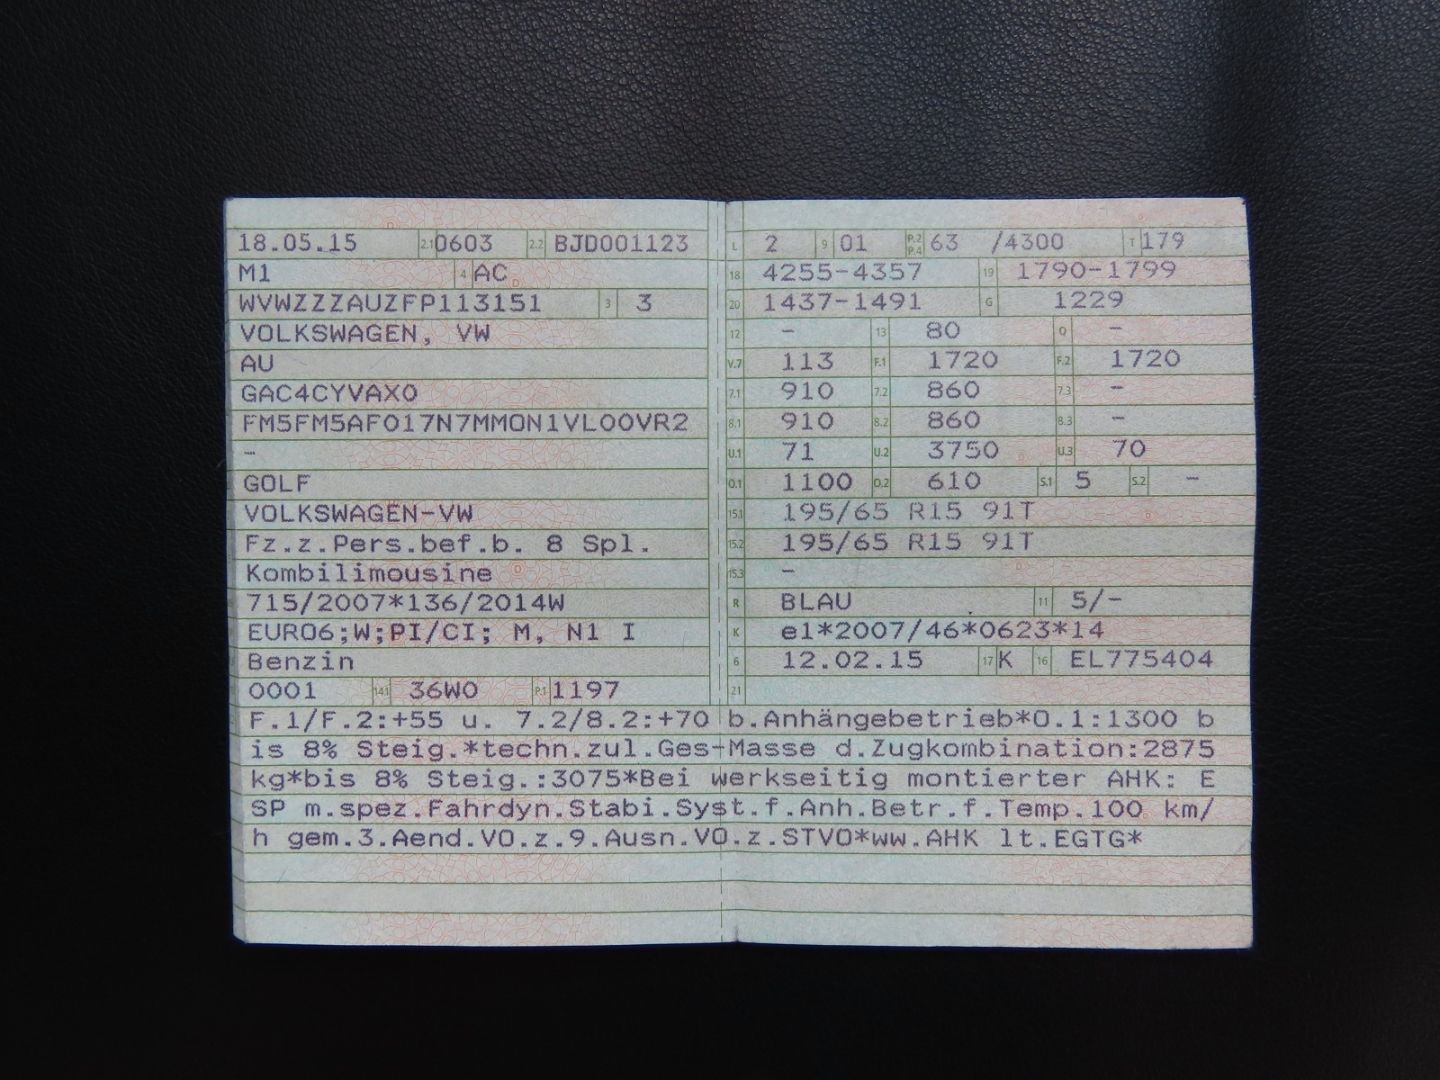 18.05.15 2.1 0603 2.2 BJD001123
M1 4 AC
WVWZZZAUZFP113151 3 3
VOLKSWAGEN, VW
AU
GAC4CYVAX0
FM5FM5AF017N7MMON1VL00VR2
-
GOLF
VOLKSWAGEN-VW
Fz.z.Pers.bef.b. 8 Spl.
Kombilimousine
715/2007*136/2014W
EURO6;W;PI/CI; M, N1 I
Benzin
0001 14.1 36W0 P.1 1197
L 2 9 01 P.2 P.4 63 /4300 T 179
18 4255-4357 19 1790-1799
20 1437-1491 G 1229
12 - 13 80 Q -
V.7 113 F.1 1720 F.2 1720
7.1 910 7.2 860 7.3 -
8.1 910 8.2 860 8.3 -
U.1 71 U.2 3750 U.3 70
O.1 1100 O.2 610 S.1 5 S.2 -
15.1 195/65 R15 91T
15.2 195/65 R15 91T
15.3 -
R BLAU 11 5/-
K e1*2007/46*0623*14
6 12.02.15 17 K 16 EL775404
21
F.1/F.2:+55 u. 7.2/8.2:+70 b.Anhängebetrieb*O.1:1300 b
is 8% Steig.*techn.zul.Ges-Masse d.Zugkombination:2875
kg*bis 8% Steig.:3075*Bei werkseitig montierter AHK: E
SP m.spez.Fahrdyn.Stabi.Syst.f.Anh.Betr.f.Temp.100 km/
h gem.3.Aend.VO.z.9.Ausn.VO.z.STVO*ww.AHK lt.EGTG*